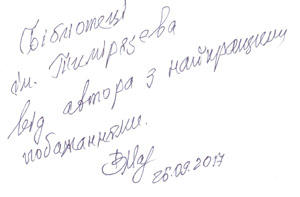 Бібліотеці
ім. Тімірязєва
від автора з найкращими
побажаннями.
26.09.2017